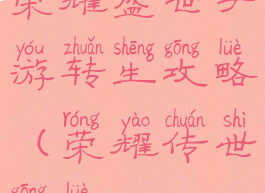 荣耀盛世手
yóu zhuǎn shēng gōng lüè
游转生攻略
róng yào chuán shì
（荣耀传世
gōng lüè